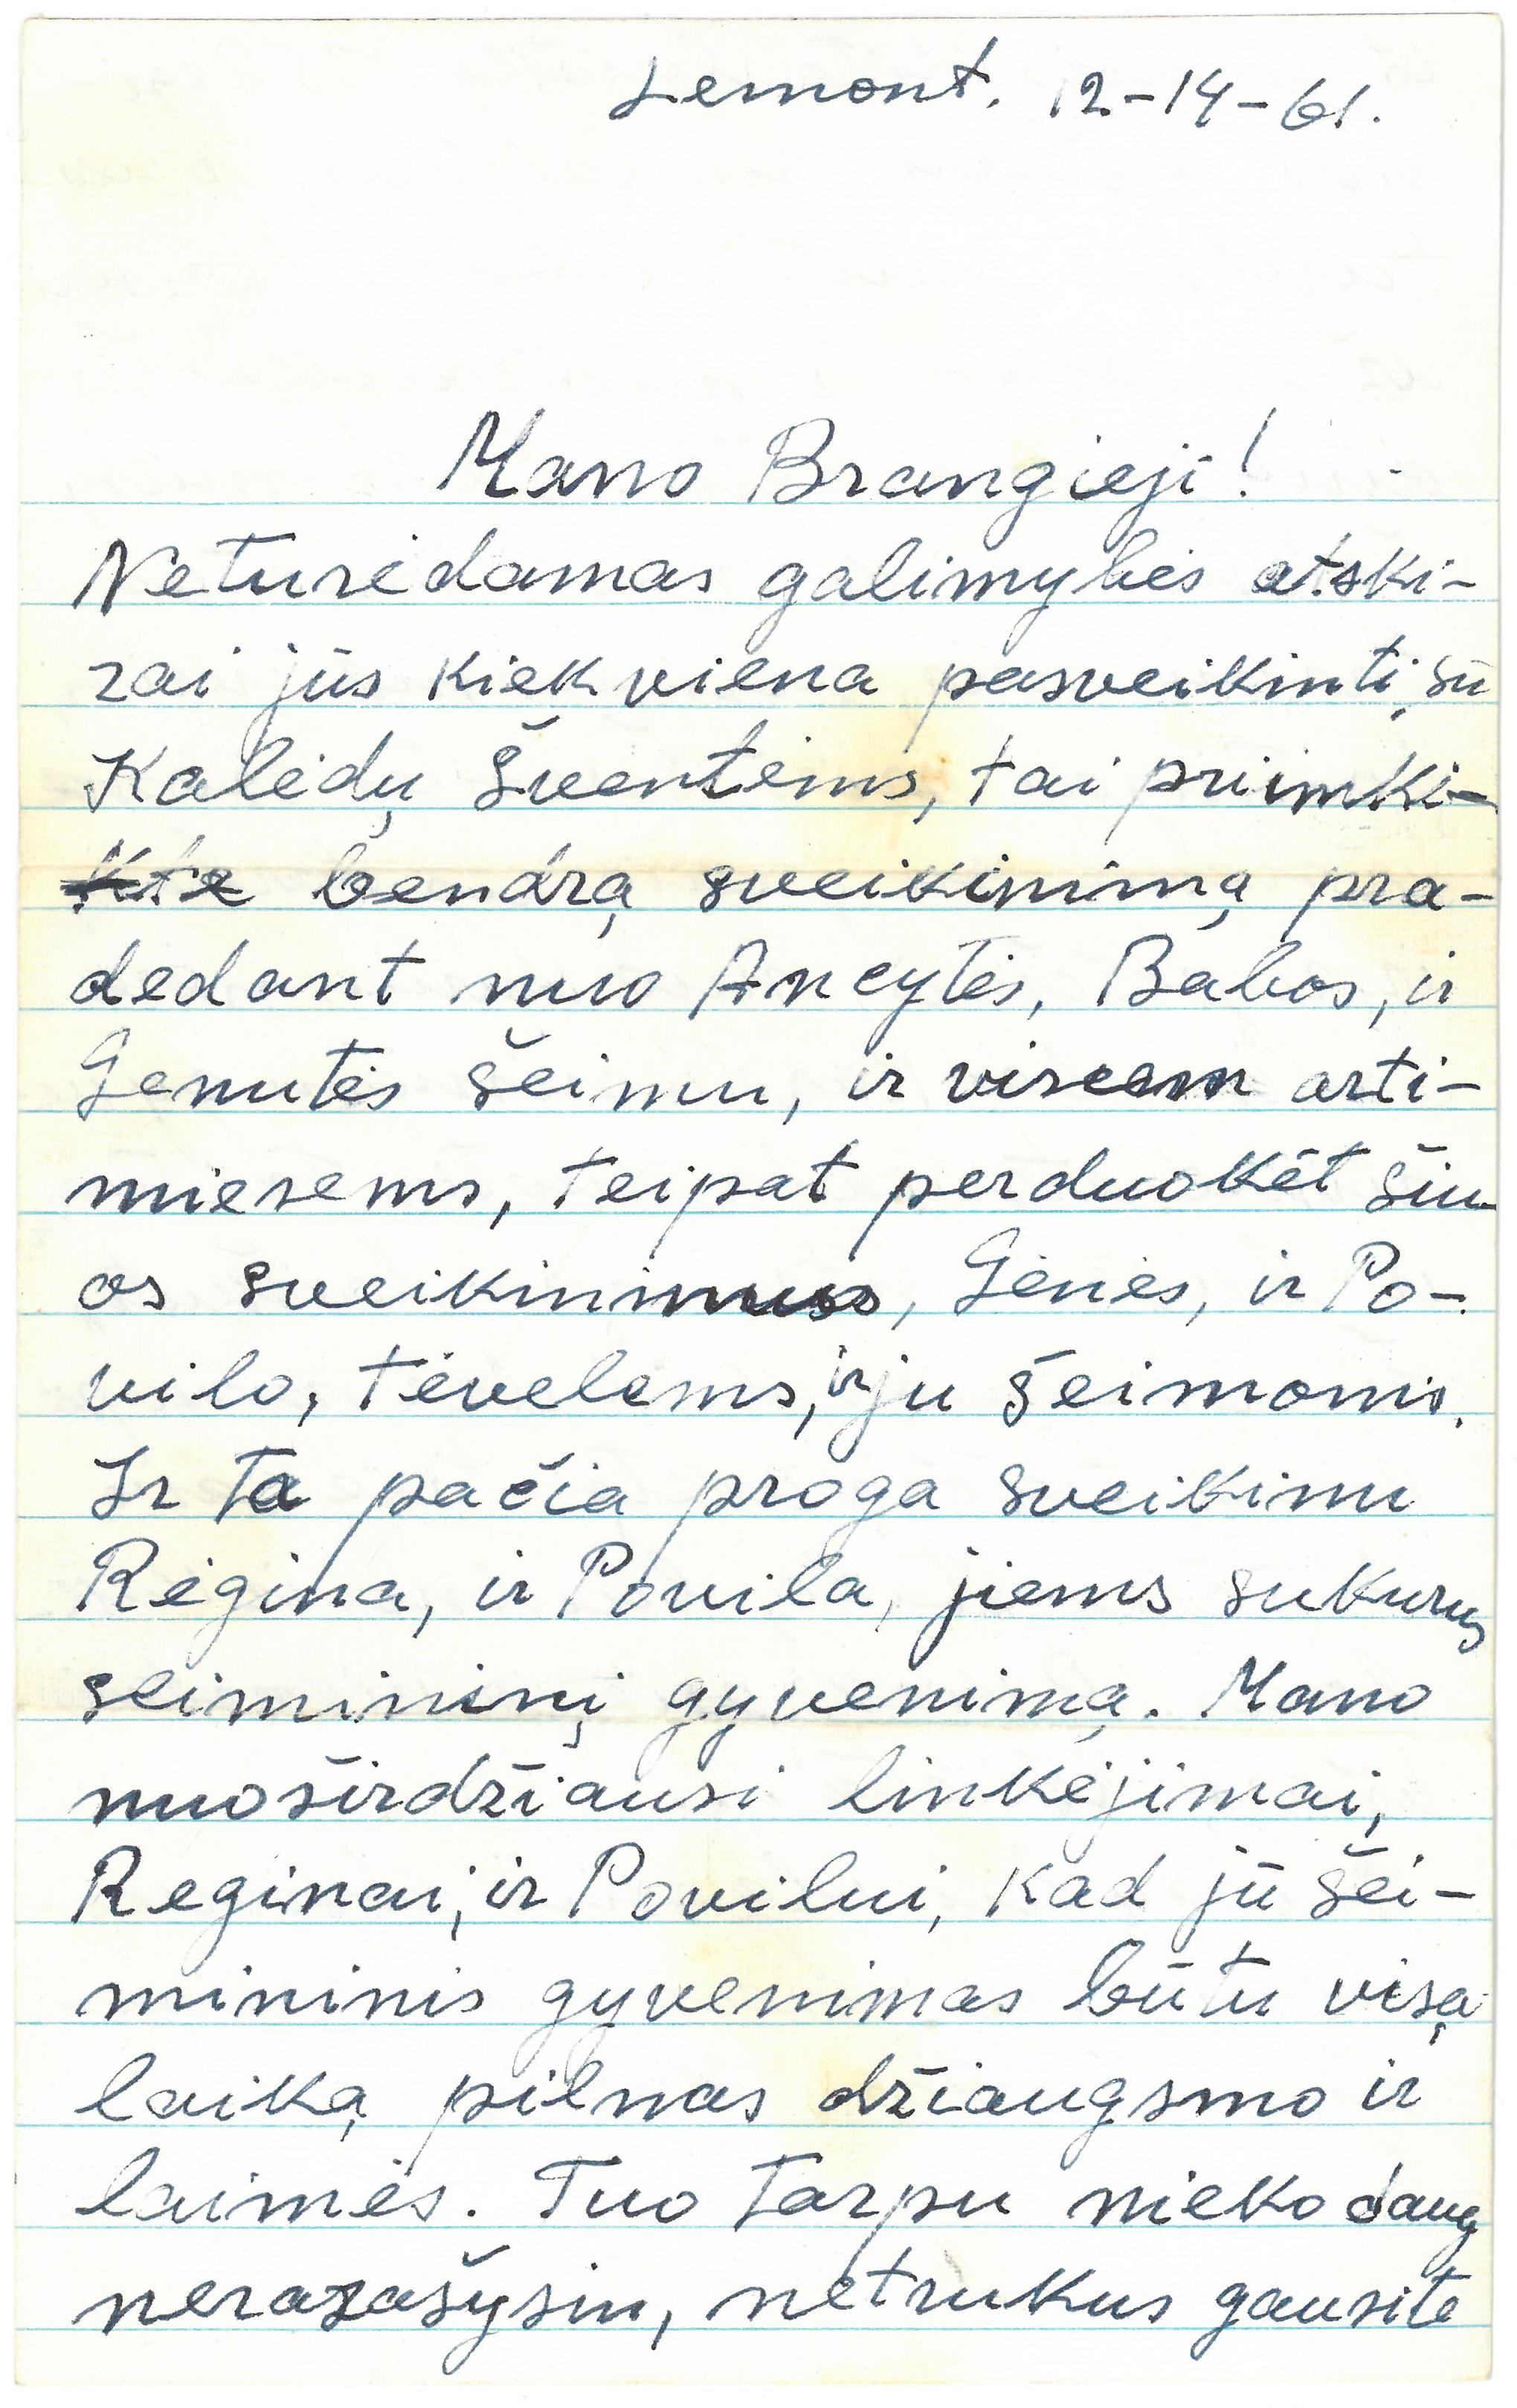 Lemont. 12-14-61.
Mano Brangieji!
Neturėdamas galimybės atski-
rai jūs kiekviena pasveikinti, su
Kalėdų Šventėms, tai priimki-
bendrą sveikinimą pra-
dedant nuo Ancytės, Babos, ir
Genutės šeimu, ir visiem arti-
miesems, teipat perduokėt šiu-
os sveikinimus, Gėnės, ir Po-
vilo, tėvelems, ir ju šeimoms.
Ir ta pačia proga sveikinu
Rėgina, ir Povila, jiems sukurus
seimininį gyvenimą. Mano
nuoširdžiausi linkėjimai,
Reginai, ir Povilui, kad jū šei-
mininis gyvenimas būtu visą
laiką pilnas džiaugsmo ir
laimės. Tuo tarpu nieko daug
nerarašysiu, netrukus gausite